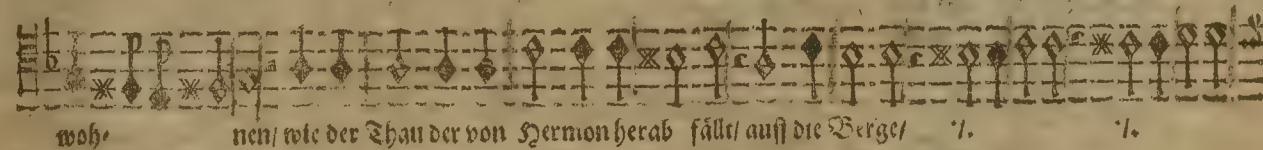 woh⸗ nen/ wie der Thau der von Hermon herab fällt/ auff die Berge/ ⁒. ⁒.